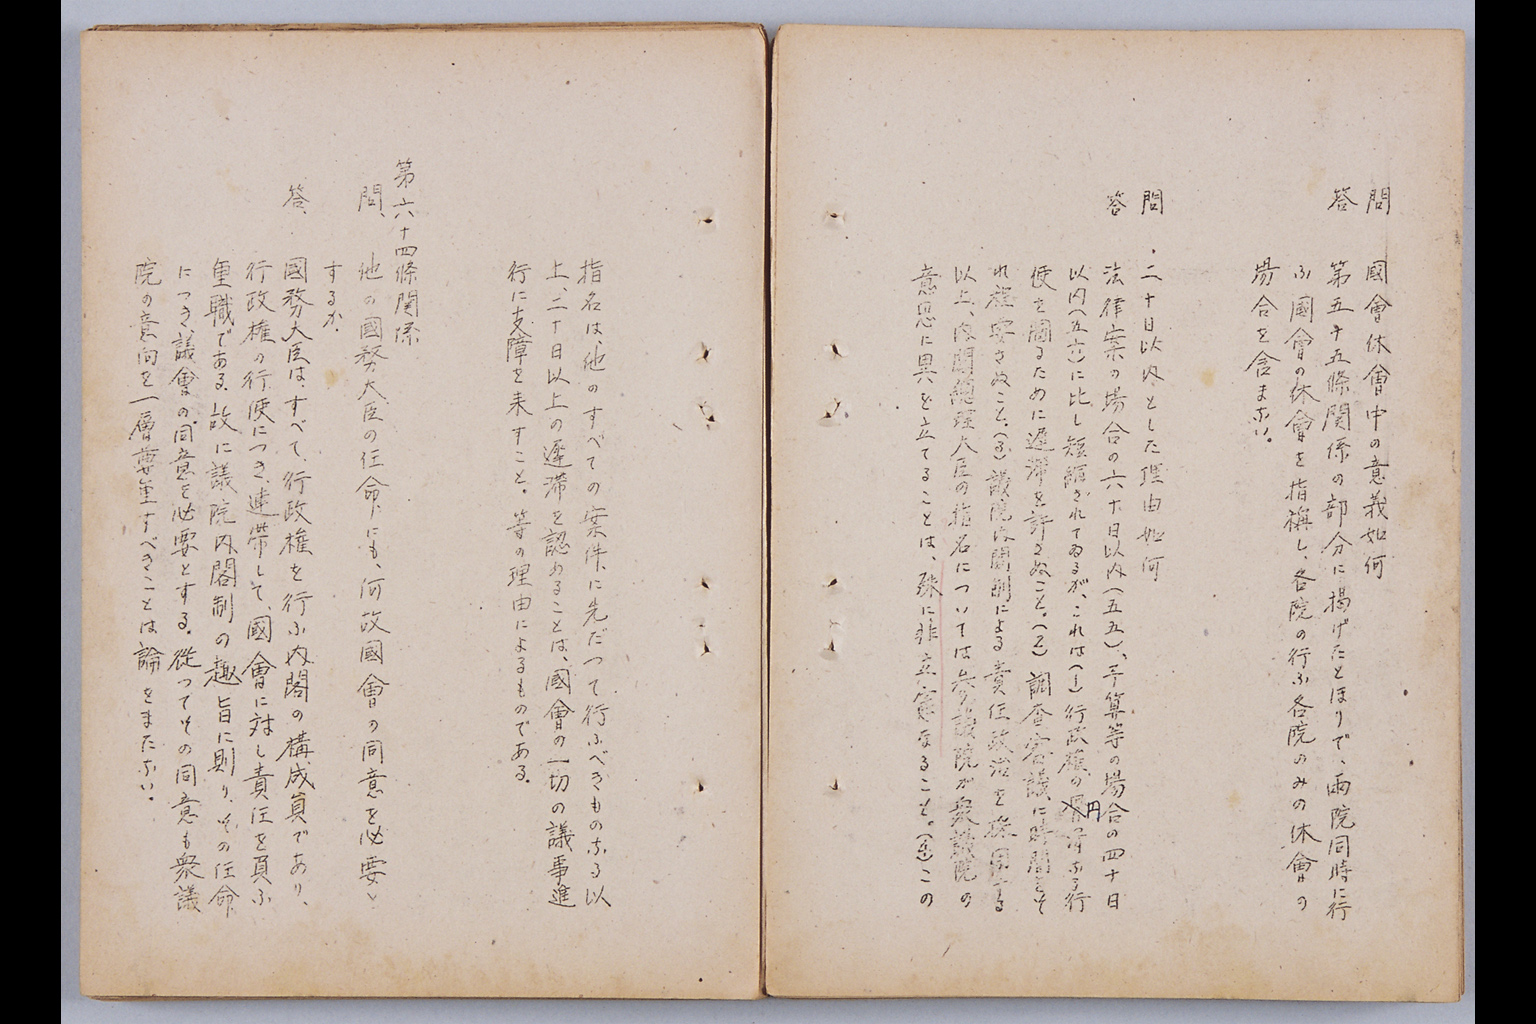 問 國會休會中の意義如何
答 第五十五條関係の部分に掲げたとほりで、両院同時に行
ふ國會の休會を指稱し、各院の行ふ各院のみの休會の
場合を含まない。
問 二十日以内とした理由如何
答 法律案の場合の六十日以内(五五)、予算等の場合の四十日
以内(五六)に比し短縮されてゐるが、これは(一)行政権の円滑なる行
使を圖るために遅滞を許さぬこと。(二)調査審議に時間をそ
れ程要さぬこと、(三)議院内閣制による責任政治を採用する
以上、内閣總理大臣の指名については参議院が衆議院の
意思に異を立てることは、殊に非立憲なること。(四)この
指名は、他のすべての案件に先だつて行ふべきものなる以
上、二十日以上の遅滞を認めることは、國會の一切の議事進
行に支障を来すこと。等の理由によるものである。
第六十四條関係
問、 他の國務大臣の任命にも、何故國會の同意を必要と
するか。
答、 國務大臣は、すべて、行政権を行ふ内閣の構成員であり、
行政権の行使につき、連帯して、國會に対し責任を負ふ
重職である。故に議院内閣制の趣旨に則り、その任命
につき、議會の同意を必要とする。從つてその同意も衆議
院の意向を一層尊重すべきことは論をまたない。